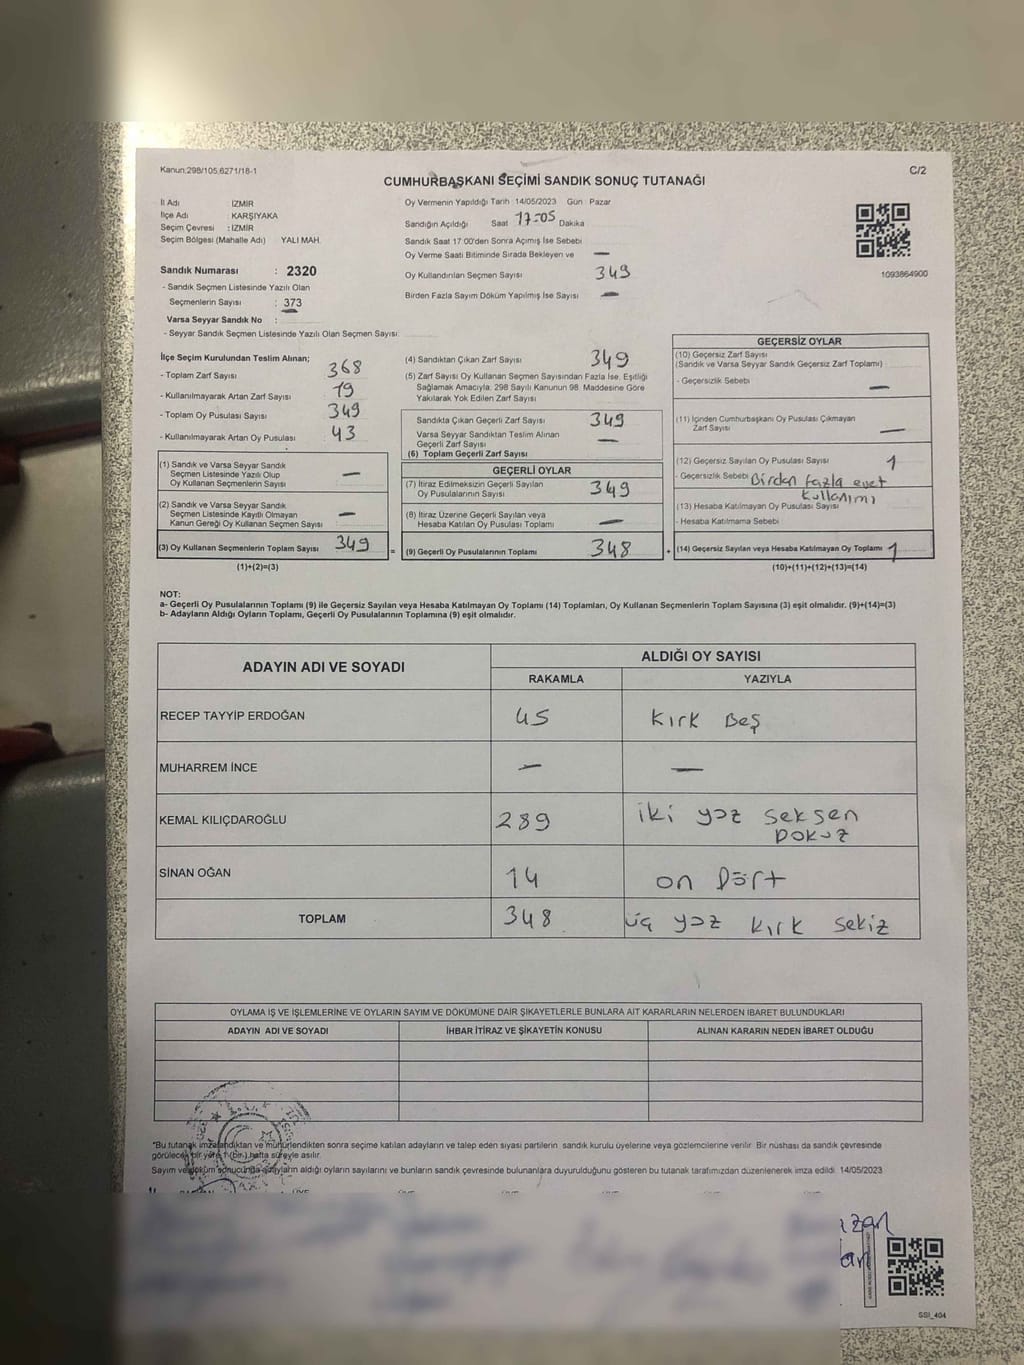 Kanun:298/105,6271/18-1
C/2
CUMHURBAŞKANI SEÇİMİ SANDIK SONUÇ TUTANAĞI
İl Adı : İZMİR
İlçe Adı : KARŞIYAKA
Seçim Çevresi : İZMİR
Seçim Bölgesi (Mahalle Adı) YALI MAH.
Oy Vermenin Yapıldığı Tarih 14/05/2023 Gün : Pazar
Sandığın Açıldığı Saat 17-05 Dakika
Sandık Saat 17:00'den Sonra Açımış İse Sebebi
Oy Verme Saati Bitiminde Sırada Bekleyen ve —
Oy Kullandırılan Seçmen Sayısı 349
Birden Fazla Sayım Döküm Yapılmış İse Sayısı —
1093864900
Sandık Numarası : 2320
- Sandık Seçmen Listesinde Yazılı Olan
Seçmenlerin Sayısı : 373
Varsa Seyyar Sandık No :
- Seyyar Sandık Seçmen Listesinde Yazılı Olan Seçmen Sayısı:
İlçe Seçim Kurulundan Teslim Alınan;
- Toplam Zarf Sayısı 368
- Kullanılmayarak Artan Zarf Sayısı 19
- Toplam Oy Pusulası Sayısı 349
- Kullanılmayarak Artan Oy Pusulası 43
(1) Sandık ve Varsa Seyyar Sandık
Seçmen Listesinde Yazılı Olup
Oy Kullanan Seçmenlerin Sayısı —
(2) Sandık ve Varsa Seyyar Sandık
Seçmen Listesinde Kayıtlı Olmayan
Kanun Gereği Oy Kullanan Seçmen Sayısı —
(3) Oy Kullanan Seçmenlerin Toplam Sayısı 349 =
(1)+(2)=(3)
(4) Sandıktan Çıkan Zarf Sayısı 349
(5) Zarf Sayısı Oy Kullanan Seçmen Sayısından Fazla İse, Eşitliği
Sağlamak Amacıyla, 298 Sayılı Kanunun 98. Maddesine Göre
Yakılarak Yok Edilen Zarf Sayısı
Sandıkta Çıkan Geçerli Zarf Sayısı 349
Varsa Seyyar Sandıktan Teslim Alınan
Geçerli Zarf Sayısı —
(6) Toplam Geçerli Zarf Sayısı
GEÇERLİ OYLAR
(7) İtiraz Edilmeksizin Geçerli Sayılan
Oy Pusulalarının Sayısı 349
(8) İtiraz Üzerine Geçerli Sayılan veya
Hesaba Katılan Oy Pusulası Toplamı —
(9) Geçerli Oy Pusulalarının Toplamı 348 +
GEÇERSİZ OYLAR
(10) Geçersiz Zarf Sayısı
(Sandık ve Varsa Seyyar Sandık Geçersiz Zarf Toplamı)
- Geçersizlik Sebebi —
(11) İçinden Cumhurbaşkanı Oy Pusulası Çıkmayan
Zarf Sayısı —
(12) Geçersiz Sayılan Oy Pusulası Sayısı 1
- Geçersizlik Sebebi Birden fazla evet
kullanımı
(13) Hesaba Katılmayan Oy Pusulası Sayısı
- Hesaba Katılmama Sebebi
(14) Geçersiz Sayılan veya Hesaba Katılmayan Oy Toplamı 1
(10)+(11)+(12)+(13)=(14)
NOT:
a- Geçerli Oy Pusulalarının Toplamı (9) ile Geçersiz Sayılan veya Hesaba Katılmayan Oy Toplamı (14) Toplamları, Oy Kullanan Seçmenlerin Toplam Sayısına (3) eşit olmalıdır. (9)+(14)=(3)
b- Adayların Aldığı Oyların Toplamı, Geçerli Oy Pusulalarının Toplamına (9) eşit olmalıdır.
ADAYIN ADI VE SOYADI
ALDIĞI OY SAYISI
RAKAMLA YAZIYLA
RECEP TAYYİP ERDOĞAN 45 Kırk Beş
MUHARREM İNCE — —
KEMAL KILIÇDAROĞLU 289 iki yüz seksen
Dokuz
SİNAN OĞAN 14 on Dört
TOPLAM 348 üç yüz kırk sekiz
OYLAMA İŞ VE İŞLEMLERİNE VE OYLARIN SAYIM VE DÖKÜMÜNE DAİR ŞİKAYETLERLE BUNLARA AİT KARARLARIN NELERDEN İBARET BULUNDUKLARI
ADAYIN ADI VE SOYADI İHBAR İTİRAZ VE ŞİKAYETİN KONUSU ALINAN KARARIN NEDEN İBARET OLDUĞU
"Bu tutanak imzalandıktan ve mühürlendikten sonra seçime katılan adayların ve talep eden siyasi partilerin sandık kurulu üyelerine veya gözlemcilerine verilir. Bir nüshası da sandık çevresinde
görülecek bir yere 1 (bir) hafta süreyle asılır.
Sayım ve döküm sonucunda adayların aldığı oyların sayılarını ve bunların sandık çevresinde bulunanlara duyurulduğunu gösteren bu tutanak tarafımızdan düzenlenerek imza edildi. 14/05/2023
SSI_404